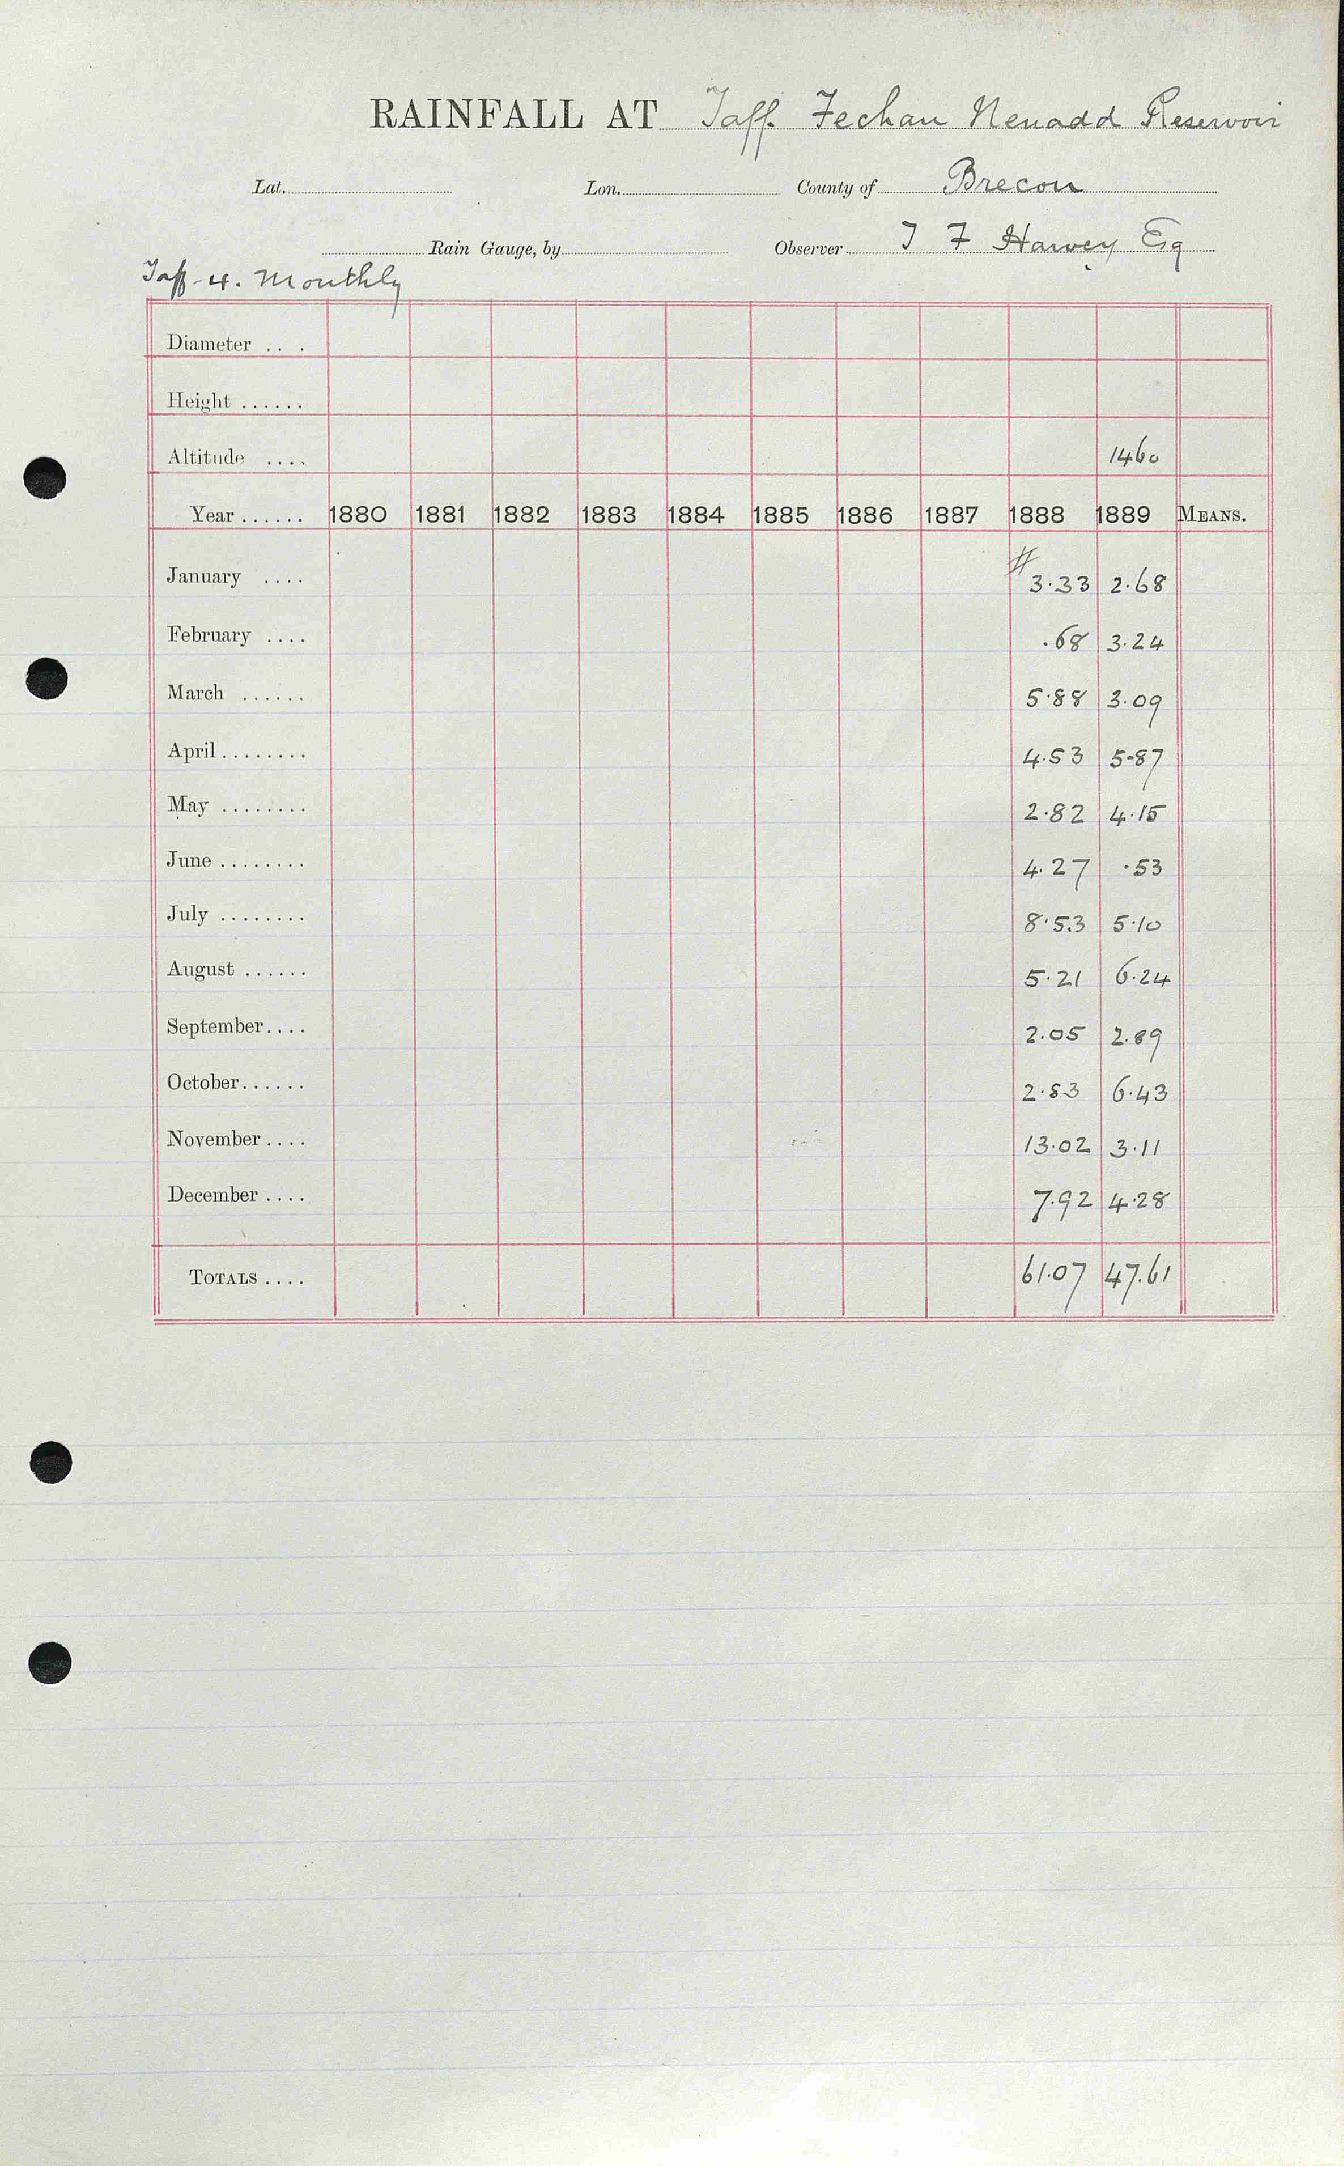 RAINFALL AT Taff Fechan Neuadd Reservoir
Lat. Lon. County of Brecon
Rain Gauge, by Observer T F Harvey Esq
Taff-4. Monthly
Diameter ...
Height ......
Altitude .... 1460
Year ...... 1880 1881 1882 1883 1884 1885 1886 1887 1888 1889 MEANS.
January .... # 3.33 2.68
February .... .68 3.24
March ...... 5.88 3.09
April ........ 4.53 5.87
May ........ 2.82 4.15
June ........ 4.27 .53
July ........ 8.53 5.10
August ...... 5.21 6.24
September .... 2.05 2.89
October ...... 2.83 6.43
November .... 13.02 3.11
December .... 7.92 4.28
TOTALS .... 61.07 47.61